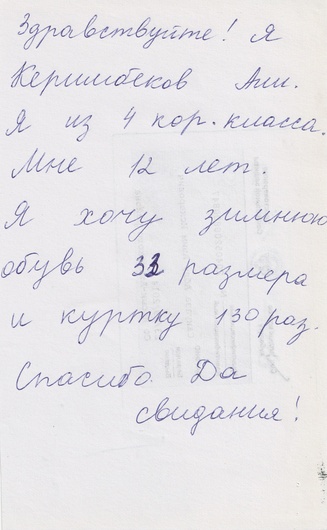 Здравствуйте! Я
Керимбеков Али.
Я из 4 кор. класса.
Мне 12 лет.
Я хочу зимнюю
обувь 33 размера
и куртку 130 раз.
Спасибо. Да
свидания!